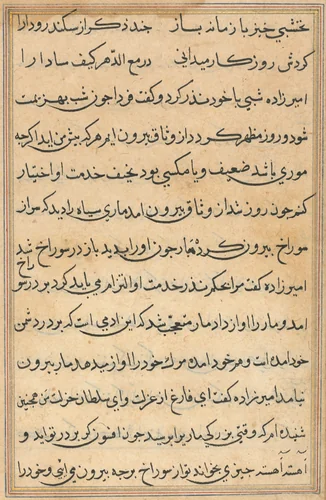 نخشبی خیز با زمانه بساز چند ذکر از سکندر و دارا
کردش روزکار میدانی در مع الدهر کیف ما دارا
امیرزاده شبی با خود نذر کرد و کفت فردا جون شب بهزیمت
شود و روز مظهر کردد از وثاق بیرون ایم هر که بیش من اید اکرچه
موری باشد ضعیف و یا مکسی بود نحیف خدمت او اختیار
کنم جون روز شد از وثاق بیرون امد ماری سیاه را دید که سر از
سوراخ بیرون کرده مار جون او را بدید باز در سوراخ شد
امیرزاده کفت مرا بحکم نذر خدمت او التزام می باید کرد بر در سوراخ
امد و مار را اواز داد مار متعجب شد که این ادمی است که بر در دشمن
خود امده است و هم خود امده مرک خود را اواز میدهد مار بیرون
نیامد امیرزاده کفت ای فارغ از عزلت و ای سلطان عزلت من همچنین
شنیده ام که وقتی بزرکی مار را برسید جون افسون کر بر در تو اید و
آهسته آهسته جیزی بخواند تو از سوراخ برجه بیرون می ائی و خود را